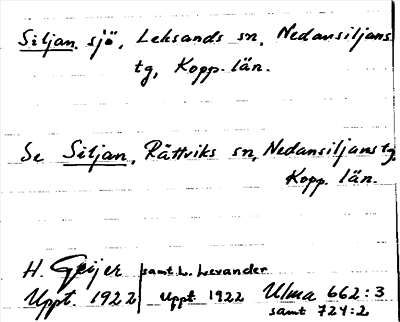 Siljan, sjö, Leksands sn, Nedansiljans
tg, Kopp. län.
Se Siljan, Rättviks sn, Nedansiljans tg,
Kopp. län.
H. Geijer samt L. Levander
Uppt. 1922 Uppt. 1922 Ulma 662:3
samt 724:2